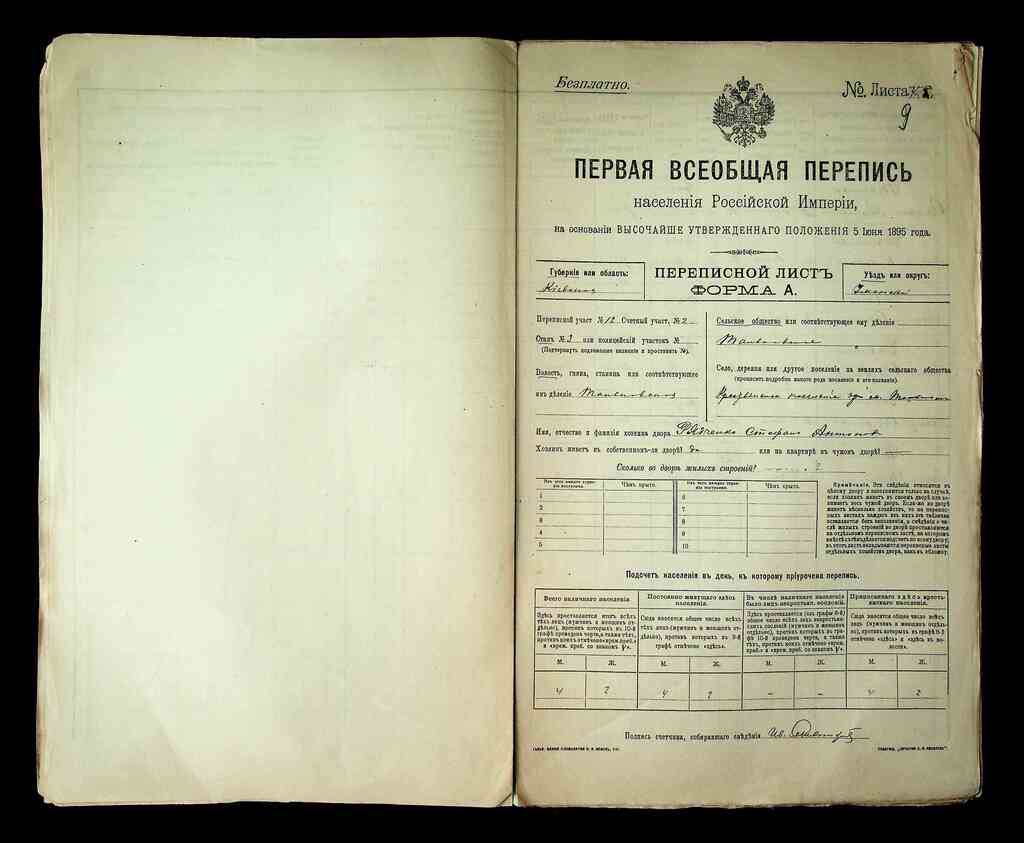 Безплатно.
№ Листа
9
ПЕРВАЯ ВСЕОБЩАЯ ПЕРЕПИСЬ
населенія Россійской Имперіи,
на основаніи ВЫСОЧАЙШЕ УТВЕРЖДЕННАГО ПОЛОЖЕНІЯ 5 Іюня 1895 года.
Губернія или область:
Кіевская
ПЕРЕПИСНОЙ ЛИСТЪ
ФОРМА А.
Уѣздъ или округъ:
Уманскій
Переписной участ №12 Счетный участ, №2
Станъ №3 или полицейскій участокъ №
(Подчеркнуть подлежащее названіе и проставить №).
Волость, гмина, станица или соотвѣтствующее
имъ дѣленіе
Сельское общество или соотвѣтствующее ему дѣленіе
Село, деревня или другое поселеніе на земляхъ сельскаго общества
(прописать подробно какого рода поселеніе и его названіе).
Имя, отчество и фамилія хозяина двора
Хозяинъ живетъ въ собственномъ-ли дворѣ? да или на квартирѣ въ чужомъ дворѣ?
Сколько во дворѣ жилыхъ строеній?
Изъ чего каждое строе-
ніе построено.
Чѣмъ крыто.
Изъ чего каждое строе-
ніе построено.
Чѣмъ крыто.
1 6
2 7
3 8
4 9
5 10
Примѣчаніе. Эти свѣдѣнія относятся къ
цѣлому двору и заполняются только въ случаѣ,
если хозяинъ живетъ въ своемъ дворѣ или за-
нимаетъ весь чужой дворъ. Если-же во дворѣ
живетъ нѣсколько хозяйствъ, то на перепис-
ныхъ листахъ каждаго изъ нихъ эта табличка
оставляется безъ заполненія, а свѣдѣнія о чи-
слѣ жилыхъ строеній во дворѣ проставляются
на отдѣльномъ переписномъ листѣ, на которомъ
вмѣстѣ съ тѣмъ дѣлается подсчетъ по всему двору;
въ этотъ листъ вкладываются переписные листы
отдѣльныхъ хозяйствъ двора, какъ въ обложку.
Подсчетъ населенія въ день, къ которому пріурочена перепись.
Всего наличнаго населенія.
Здѣсь проставляется итогъ всѣхъ
тѣхъ лицъ (мужчинъ и женщинъ от-
дѣльно), противъ которыхъ въ 10-й
графѣ проведена черта, а также тѣхъ,
противъ коихъ отмѣчено «врем. преб.»
и «врем. преб. со знакомъ
Постоянно живущаго здѣсь
населенія.
Сюда вносится общее число всѣхъ
лицъ (мужчинъ и женщинъ отдѣ-
льно), противъ которыхъ въ 9-й
графѣ отмѣчено «здѣсь».
Въ числѣ наличнаго населенія
было лицъ некрестьян. сословій.
Здѣсь проставляется (изъ графы 6-й)
общее число всѣхъ лицъ некрестьян-
скихъ сословій (мужчинъ и женщинъ
отдѣльно), противъ которыхъ въ
графѣ 10-й проведена черта, а также
тѣхъ, противъ коихъ отмѣчено «врем.
преб.» и «врем. преб. со знакомъ
Приписаннаго здѣсь кресть-
янскаго населенія.
Сюда вносится общее число всѣхъ
лицъ (мужчинъ и женщинъ отдѣль-
но), противъ которыхъ въ графѣ 8-й
отмѣчено «здѣсь» и «здѣсь въ во-
лости».
М. Ж. М. Ж. М. Ж. М. Ж.
4 2 4 2 – – 4 2
Подпись счетчика, собиравшаго свѣдѣнія